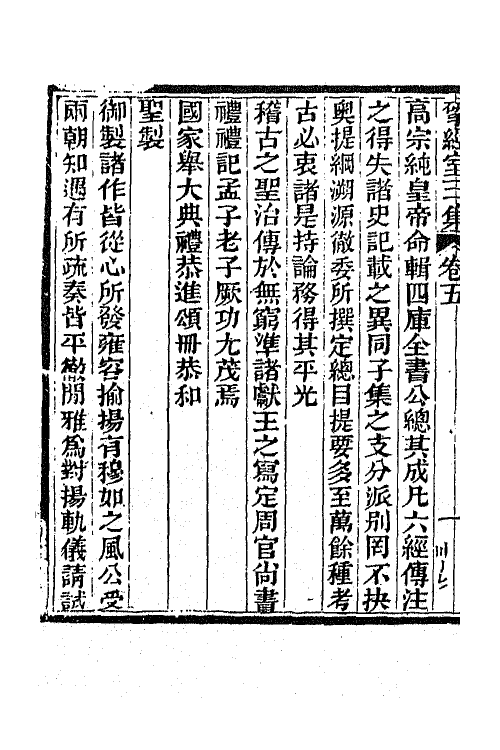 揅經室三集 卷五
高宗純皇帝命輯四庫全書公總其成凡六經傳注
之得失諸史記載之異同子集之支分派別罔不抉
奧提綱溯源徹委所撰定總目提要多至萬餘種考
古必衷諸是持論務得其平光
稽古之聖治傳於無窮準諸獻王之寫定周官尚書
禮禮記孟子老子厥功尤茂焉
國家舉大典禮恭進頌冊恭和
聖製
御製諸作皆從心所發雍容揄揚有穆如之風公受
兩朝知遇有所疏奏皆平徹閒雅爲對揚軌儀請試